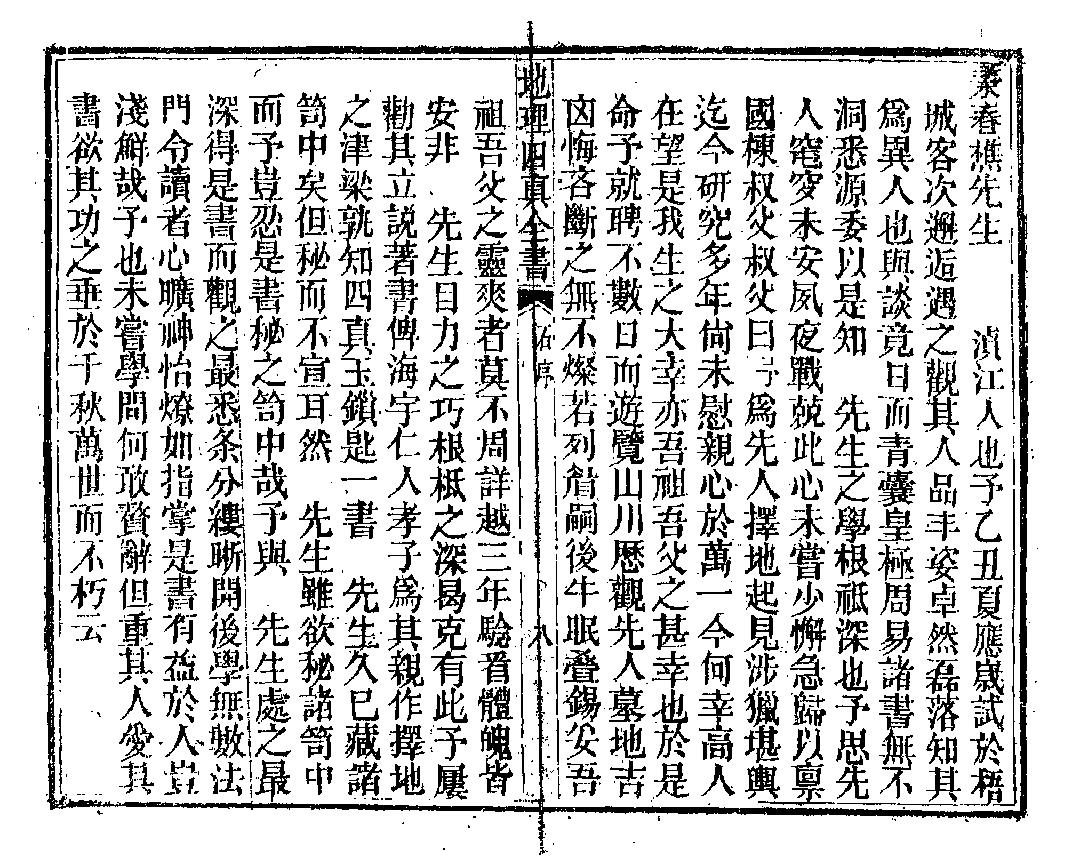 春樵先生 滇江人也予乙丑夏應歲試於梧
城客次邂逅遇之觀其人品丰姿卓然磊落知其
爲異人也與談竟日而青囊皇極周易諸書無不
洞悉源委以是知 先生之學根柢深也予思先
人窀穸未安夙夜戰兢此心未嘗少懈急歸以禀
國棟叔父叔父曰 爲先人擇地起見涉獵堪輿
迄今研究多年尙未慰親心於萬一今何幸高人
在望是我生之大幸亦吾祖吾父之甚幸也於是
命予就聘不數日而遊覽山川歴觀先人墓地吉
凶悔吝斷之無不燦若列眉嗣後牛眠叠錫安吾
地理四眞全書 序 八
祖吾父之靈爽者莫不周詳越三年驗首體魄皆
安非 先生目力之巧根柢之深曷克有此予屢
勸其立説著書俾海宇仁人孝子爲其親作擇地
之津梁孰知四眞玉鎖匙一書 先生久巳藏諸
笥中矣但秘而不宣耳然 先生雖欲秘諸笥中
而予豈忍是書秘之笥中哉予與 先生處之最
深得是書而觀之最悉条分縷晰開後學無數法
門令讀者心曠神怡燎如指掌是書有益於人豈
淺鮮哉予也未嘗學問何敢贅辭但重其人愛其
書欲其功之垂於千秋萬世而不朽云